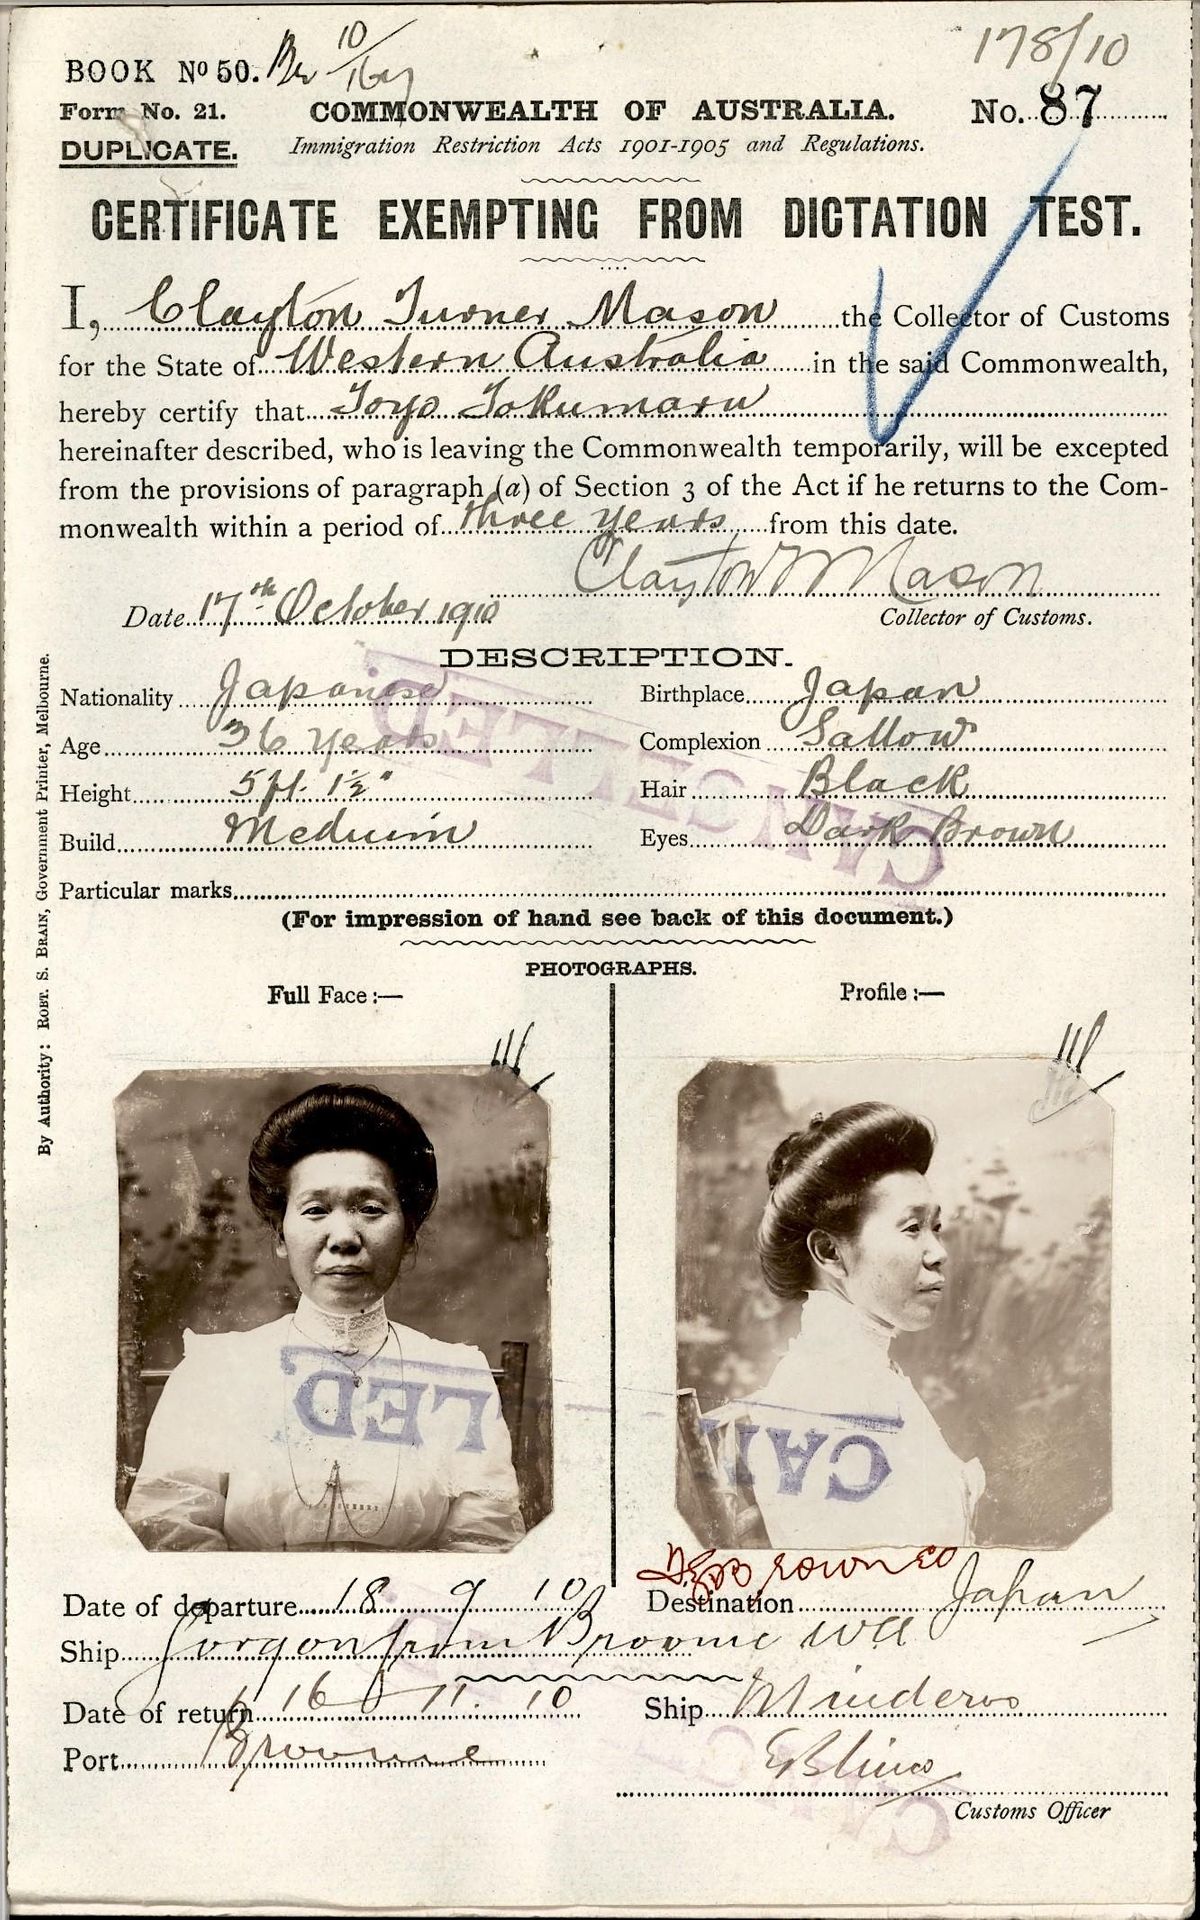 178/10
BOOK No 50.
Form No. 21. COMMONWEALTH OF AUSTRALIA. No. 87
DUPLICATE. Immigration Restriction Acts 1901-1905 and Regulations.
CERTIFICATE EXEMPTING FROM DICTATION TEST.
I, Clayton Turner Mason the Collector of Customs
for the State of Western Australia in the said Commonwealth,
hereby certify that Toyo Tokumaru
hereinafter described, who is leaving the Commonwealth temporarily, will be excepted
from the provisions of paragraph (a) of Section 3 of the Act if he returns to the Com-
monwealth within a period of three years from this date.
Clayton T Mason
Date 17th October 1910 Collector of Customs.
DESCRIPTION.
Nationality Japanese Birthplace Japan
Age 36 years Complexion Sallow
Height 5 ft. 1½" Hair Black
Build Medium Eyes Dark Brown
Particular marks
CANCELLED.
(For impression of hand see back of this document.)
PHOTOGRAPHS.
Full Face :— Profile :—
CAN LLED.
Date of departure 18 9 10 Destination Japan
Ship Gorgon from Broome WA
Date of return 16 11. 10 Ship Minderoo
Port Broome
Customs Officer
By Authority: ROBT. S. BRAIN, Government Printer, Melbourne.